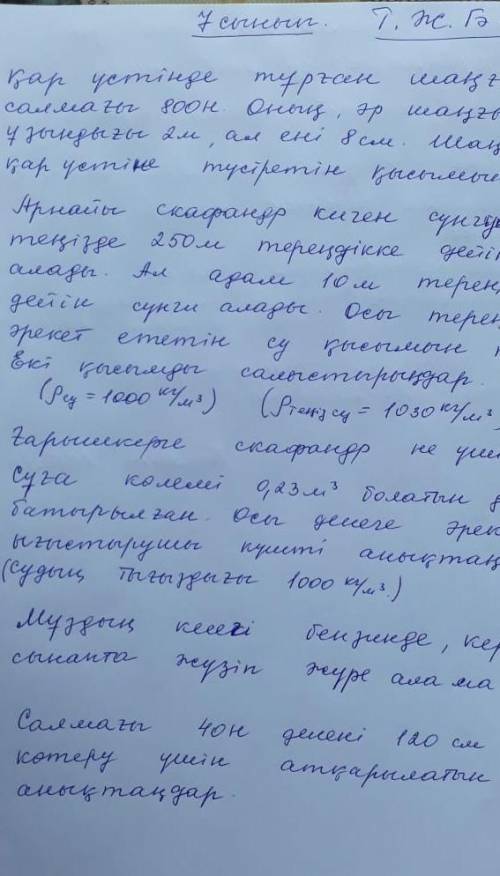 7 сынып. Т. Ж. Б
Қар үстінде тұрған шаңғ
салмағы 800н. Оның, әр шаңғы
ұзындығы 2м, ал ені 8см. Шаң
қар үстіне түсіретін қысымын
Арнайы скафандр киген сүңгуі
теңізде 250м тереңдікке дейін
алады. Ал адам 10м терең
дейін сүңги алады. Осы терең
әрекет ететін су қысымын
Екі қысымды салыстырыңдар.
(ρсу = 1000 кг/м³) (ρтеңіз су = 1030 кг/м³
Ғарышкерге скафандр не үші
Суға көлемі 0,23м³ болатын д
батырылған. Осы денеге әрек
ығыстырушы күшті анықтаң
(судың тығыздығы 1000 кг/м³.)
Мұздың кесегі бензинде, кер
сынапта жүзіп жүре ала ма
Салмағы 40н денені 120 см
көтеру үшін атқарылатын
анықтаңдар.